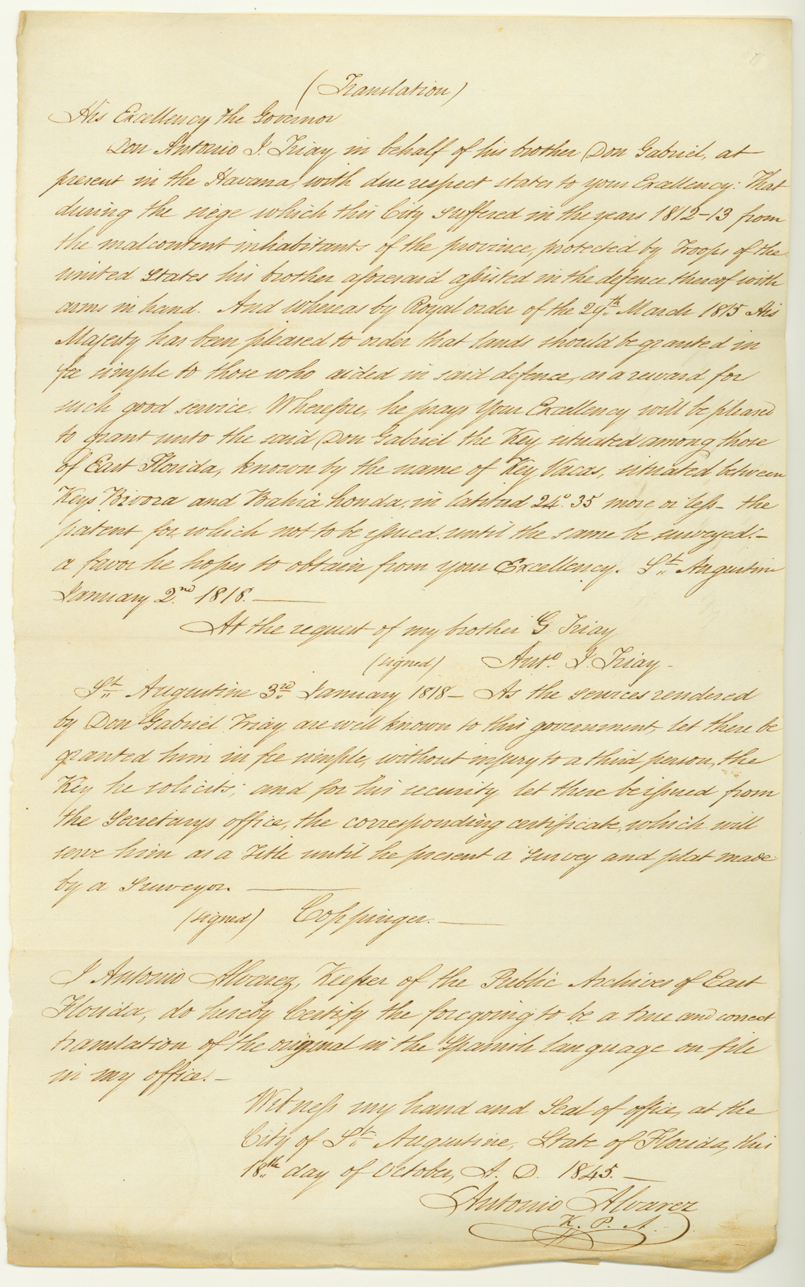 (Translation)
His Excellency the Governor
Don Antonio J. Triay in behalf of his brother Don Gabriel, at
present in the Havana, with due respect states to your Excellency: That
during the siege which this City suffered in the years 1812-13 from
the malcontent inhabitants of the province, protected by Troops of the
united States his brother aforesaid assisted in the defence thereof with
arms in hand. And whereas by Royal order of the 29th March 1815 His
Majesty has been pleased to order that lands should be granted in
fee simple to those who aided in said defence, as a reward for
such good service. Wherefore, he prays Your Excellency will be pleased
to grant unto the said Don Gabriel the Key, situated among those
of East Florida, known by the name of Key Vacas, situated between
Keys Bivora and Bahia honda, in latitud 24°.35 more or less - the
patent for which not to be issued until the same be surveyed:-
a favor he hopes to obtain from your Excellency. St. Augustine
January 2nd 1818.
At the request of my brother G Triay
(signed) Anto J Triay -
St. Augustine 3rd January 1818 - As the services rendered
by Don Gabriel Triay are well known to this government, let there be
granted him in fee simple, without injury to a third person, the
Key he solicits; and for his security let there be issued from
the Secretarys office, the corresponding certificate, which will
serve him as a Title until he present a Survey and plat made
by a Surveyor.
(signed) Coppinger.
I Antonio Alvarez, Keeper of the Public Archives of East
Florida, do hereby Certify the foregoing to be a true and correct
translation of the original in the Spanish language on file
in my office. -
Witness my hand and Seal of office, at the
City of St. Augustine, State of Florida, this
18th day of October, A. D. 1845. -
Antonio Alvarez
K. P. A.